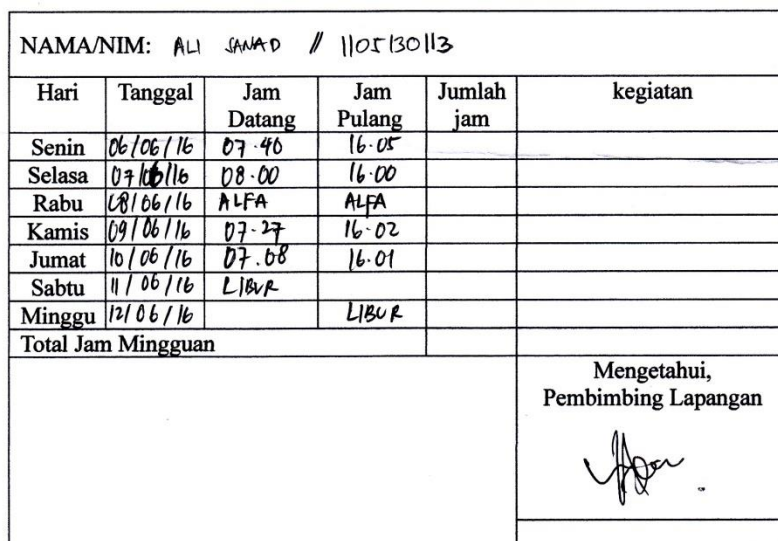 NAMA/NIM: ALI SANAD // 1105130113
Hari Tanggal Jam Datang Jam Pulang Jumlah jam kegiatan
Senin 06/06/16 07.40 16.05
Selasa 07/06/16 08.00 16.00
Rabu 08/06/16 ALFA ALFA
Kamis 09/06/16 07.27 16.02
Jumat 10/06/16 07.08 16.01
Sabtu 11/06/16 LIBUR
Minggu 12/06/16 LIBUR
Total Jam Mingguan
Mengetahui,
Pembimbing Lapangan